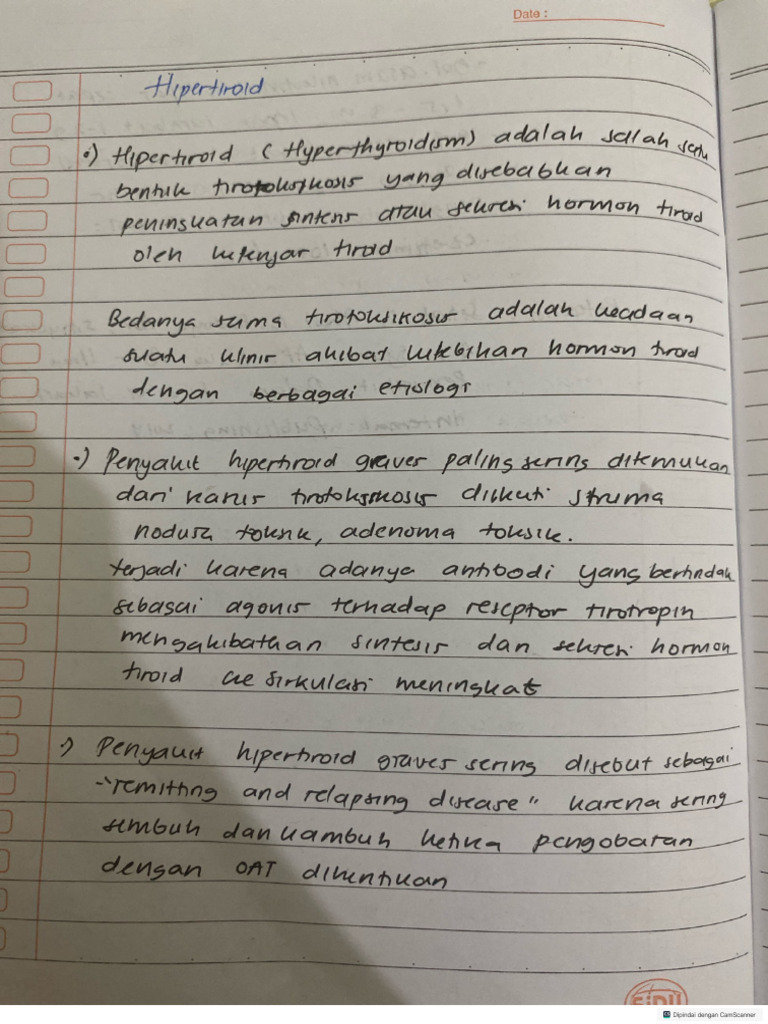 Date :
Hipertiroid
•) Hipertiroid (Hyperthyroidism) adalah salah satu
bentuk tirotoksikosis yang disebabkan
peningkatan sintesis atau sekresi hormon tiroid
oleh kelenjar tiroid
Bedanya sama tirotoksikosis adalah keadaan
suatu klinis akibat kelebihan hormon tiroid
dengan berbagai etiologi
•) Penyakit hipertiroid graves paling sering ditemukan
dari kasus tirotoksikosis diikuti struma
nodusa toksik, adenoma toksik.
terjadi karena adanya antibodi yang bertindak
sebagai agonis terhadap reseptor tirotropin
mengakibatkan sintesis dan sekresi hormon
tiroid ke sirkulasi meningkat
•) Penyakit hipertiroid graves sering disebut sebagai
"remitting and relapsing disease" karena sering
sembuh dan kambuh ketika pengobatan
dengan OAT dihentikan
SiDU
Dipindai dengan CamScanner